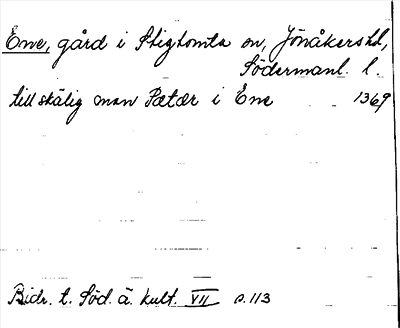 Ene, gård i Stigtomta sn, Jönåkers hd,
Södermanl. l.
till skälig man Pætær i Ene 1369
Bidr. t. Söd. ä. kult. VII s. 113